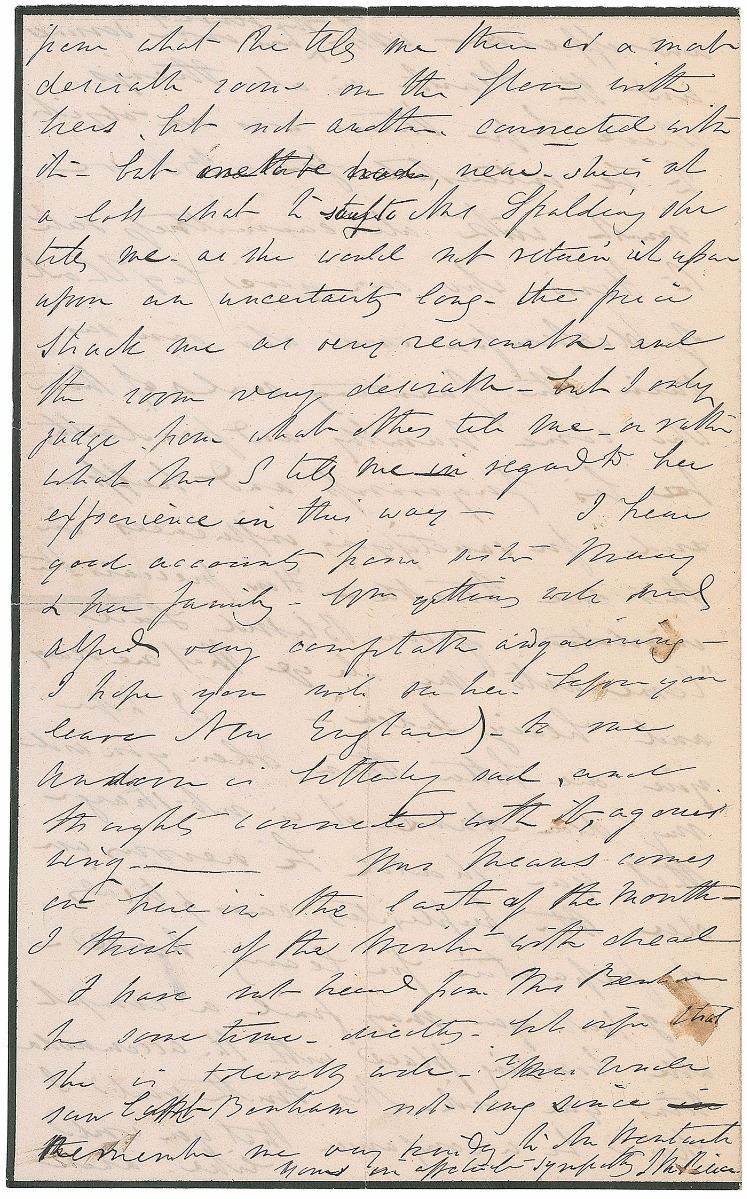 from what she tells me there is a most
desirable room on the floor with
hers, but not another connected with
it - but near - she is at
a loss what to say to Mrs Spalding she
tells me - as she would not retain it
upon an uncertainty long - the price
struck me as very reasonable - and
the room very desirable - but I only
judge from what others tell me - or rather
what Mrs S tells me in regard to her
experience in this way - I hear
good accounts from sister Mary
& her family - getting well and
Alfred very comfortable and gaining -
I hope you will see her before you
leave New England) - to me
Andover is bitterly sad, and
thoughts connected with it, agoniz
ing - Mrs Means comes
on here in the last of the month -
I think of the winter with dread
I have not heard from Mrs Benham
for some time - directly - but infer that
she is tolerably well - Uncle
saw Capt Benham not long since in
Remember me very kindly to Mr Wentworth
Yours in affectionate sympathy J M Pierce